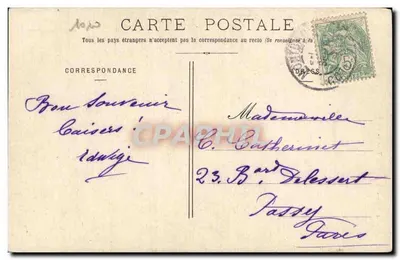 10,00
CARTE POSTALE
Tous les pays étrangers n'acceptent pas la correspondance au recto (Se renseigner à la
CORRESPONDANCE
Bon Souvenir
Baisers
Edwige
Mademoiselle
C. Catherinet
23. B^ard Delessert
Passy
Paris
CARTES-POSTALES